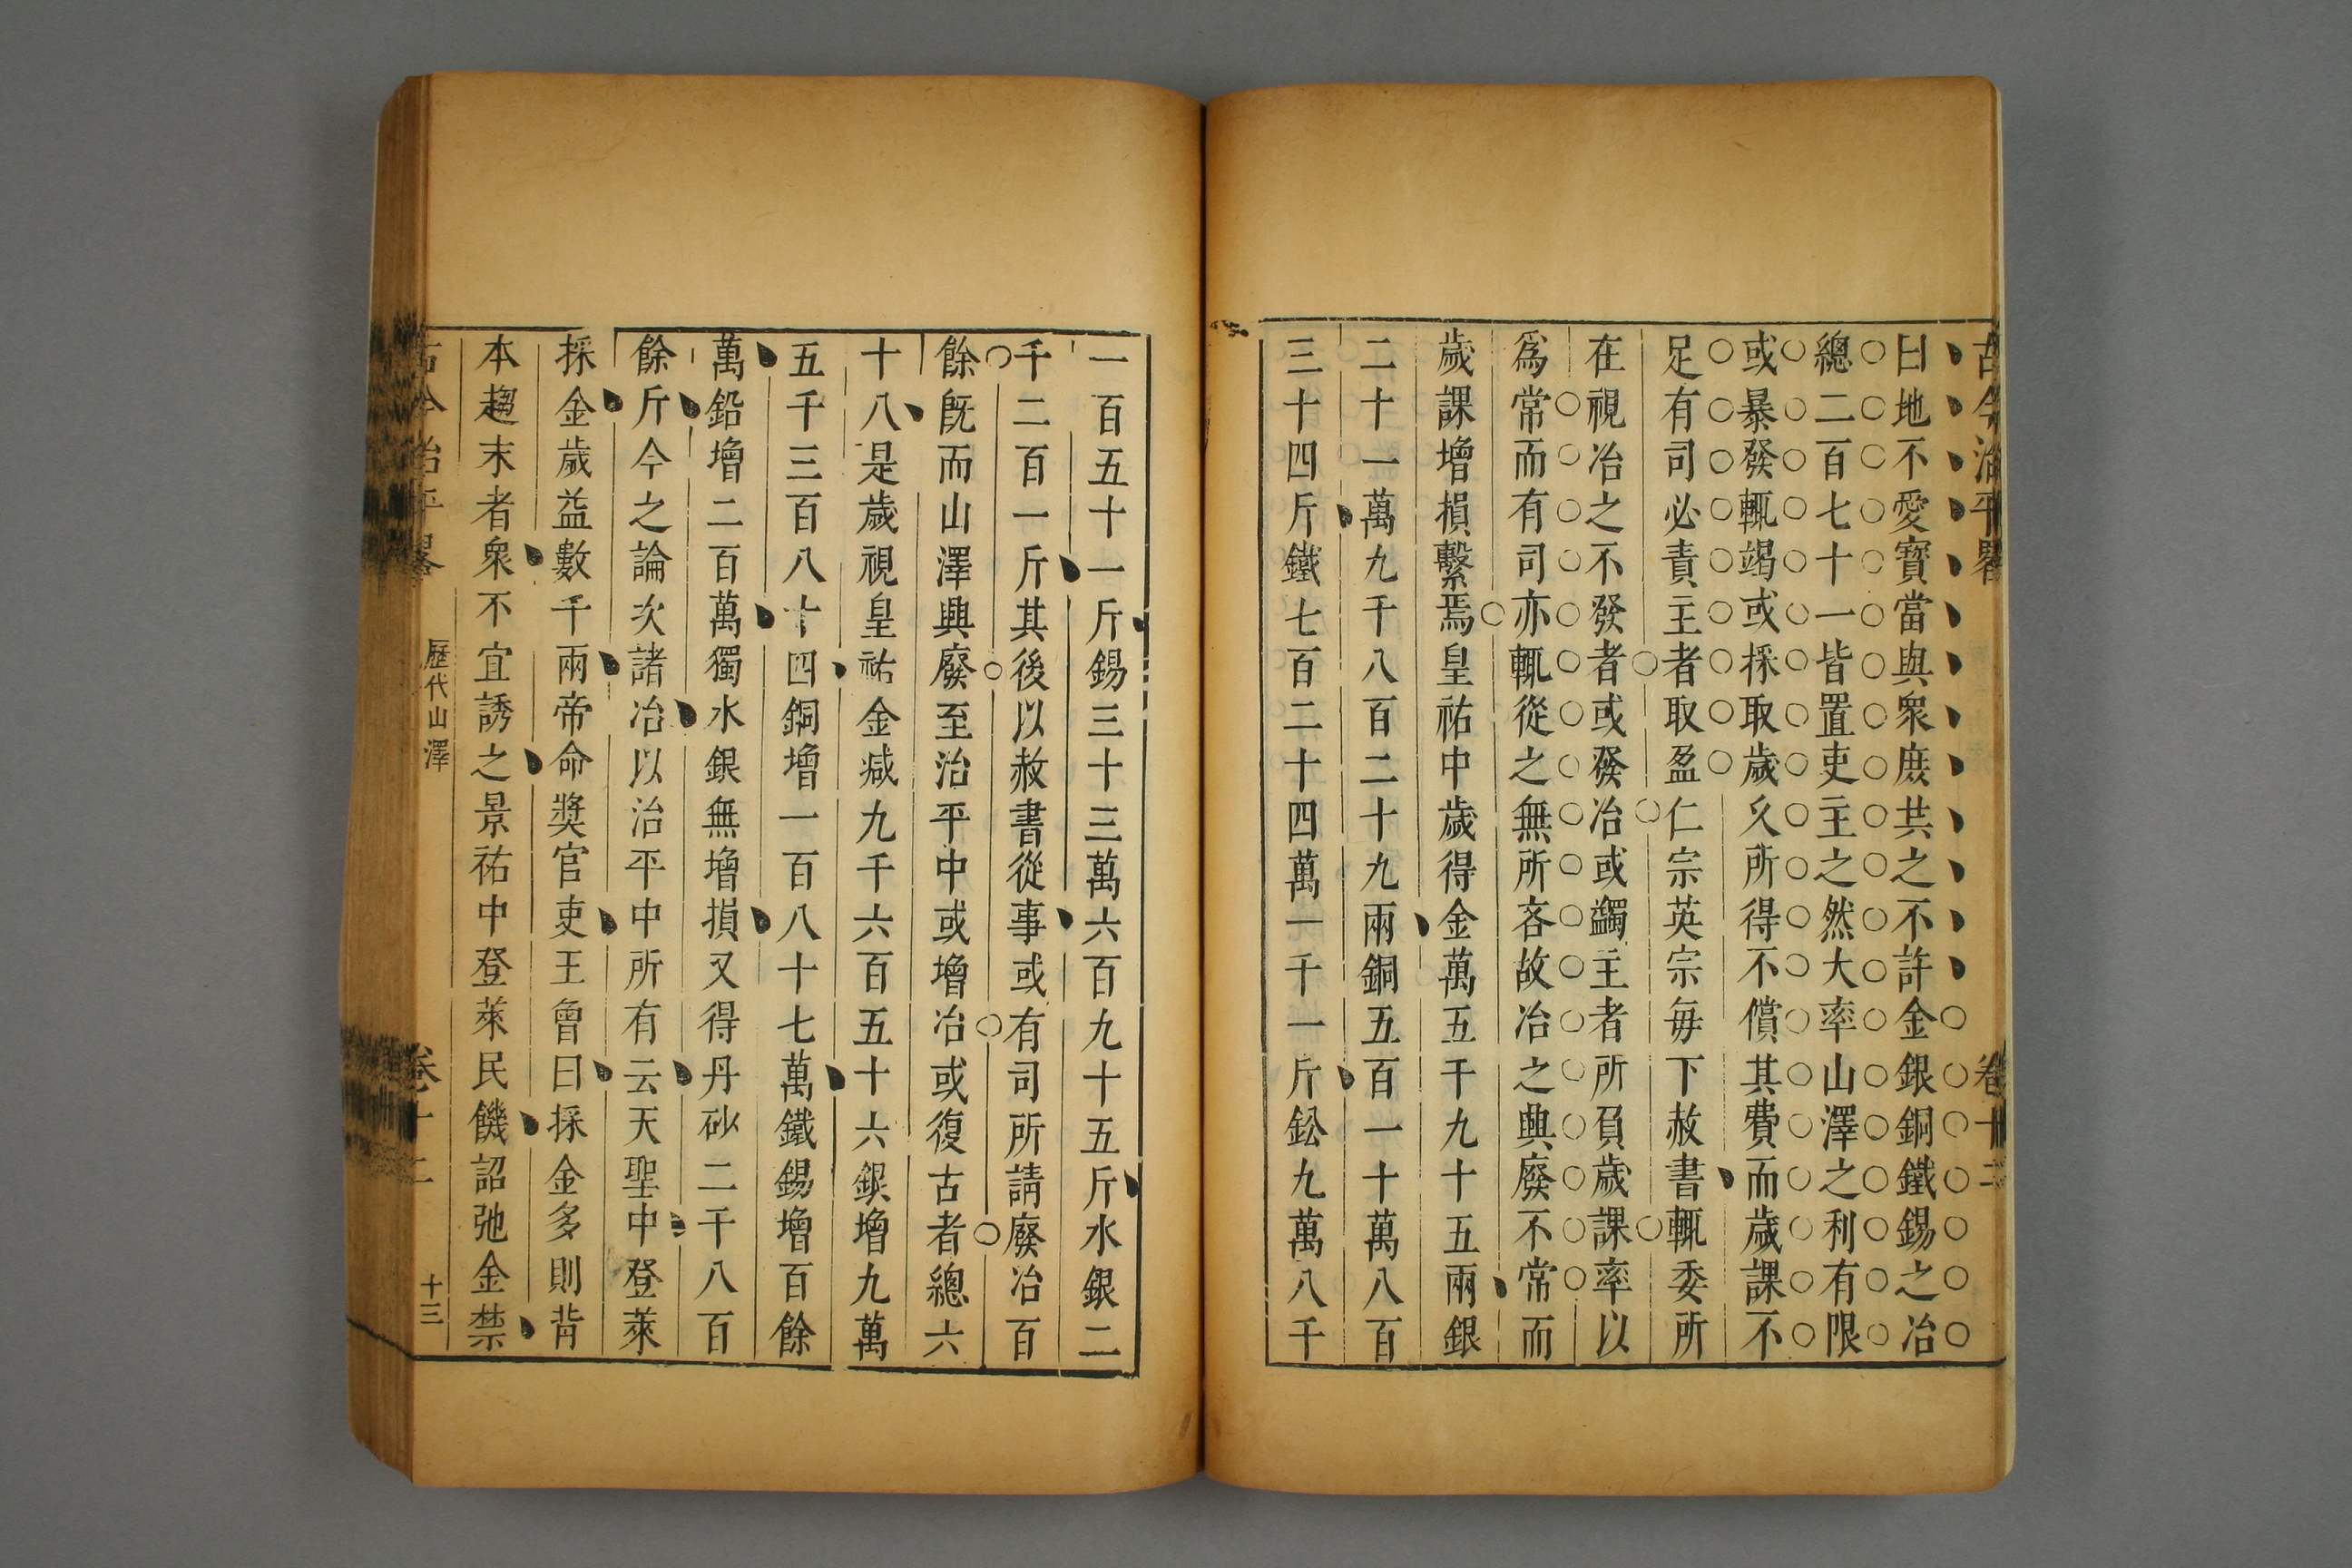 古今治平畧 卷十二
曰地不愛寶當與衆庶共之不許金銀銅鐵錫之冶
總二百七十一皆置吏主之然大率山澤之利有限
或暴發輒竭或採取歲久所得不償其費而歲課不
足有司必責主者取盈仁宗英宗每下赦書輒委所
在視冶之不發者或廢冶或蠲主者所負歲課率以
爲常而有司亦輒從之無所吝故冶之興廢不常而
歲課增損繫焉皇祐中歲得金萬五千九十五兩銀
二十一萬九千八百二十九兩銅五百一十萬八百
三十四斤鐵七百二十四萬一千一斤鈆九萬八千
一百五十一斤錫三十三萬六百九十五斤水銀二
千二百一斤其後以赦書從事或有司所請廢冶百
餘旣而山澤興廢至治平中或增冶或復古者總六
十八是歲視皇祐金减九千六百五十六銀增九萬
五千三百八十四銅增一百八十七萬鐵錫增百餘
萬鉛增二百萬獨水銀無增損又得丹砂二千八百
餘斤今之論次諸冶以治平中所有云天聖中登萊
採金歲益數千兩帝命奬官吏王曾曰採金多則背
本趨末者衆不宜誘之景祐中登萊民饑詔弛金禁
古今治平畧 歷代山澤 卷十二 十三